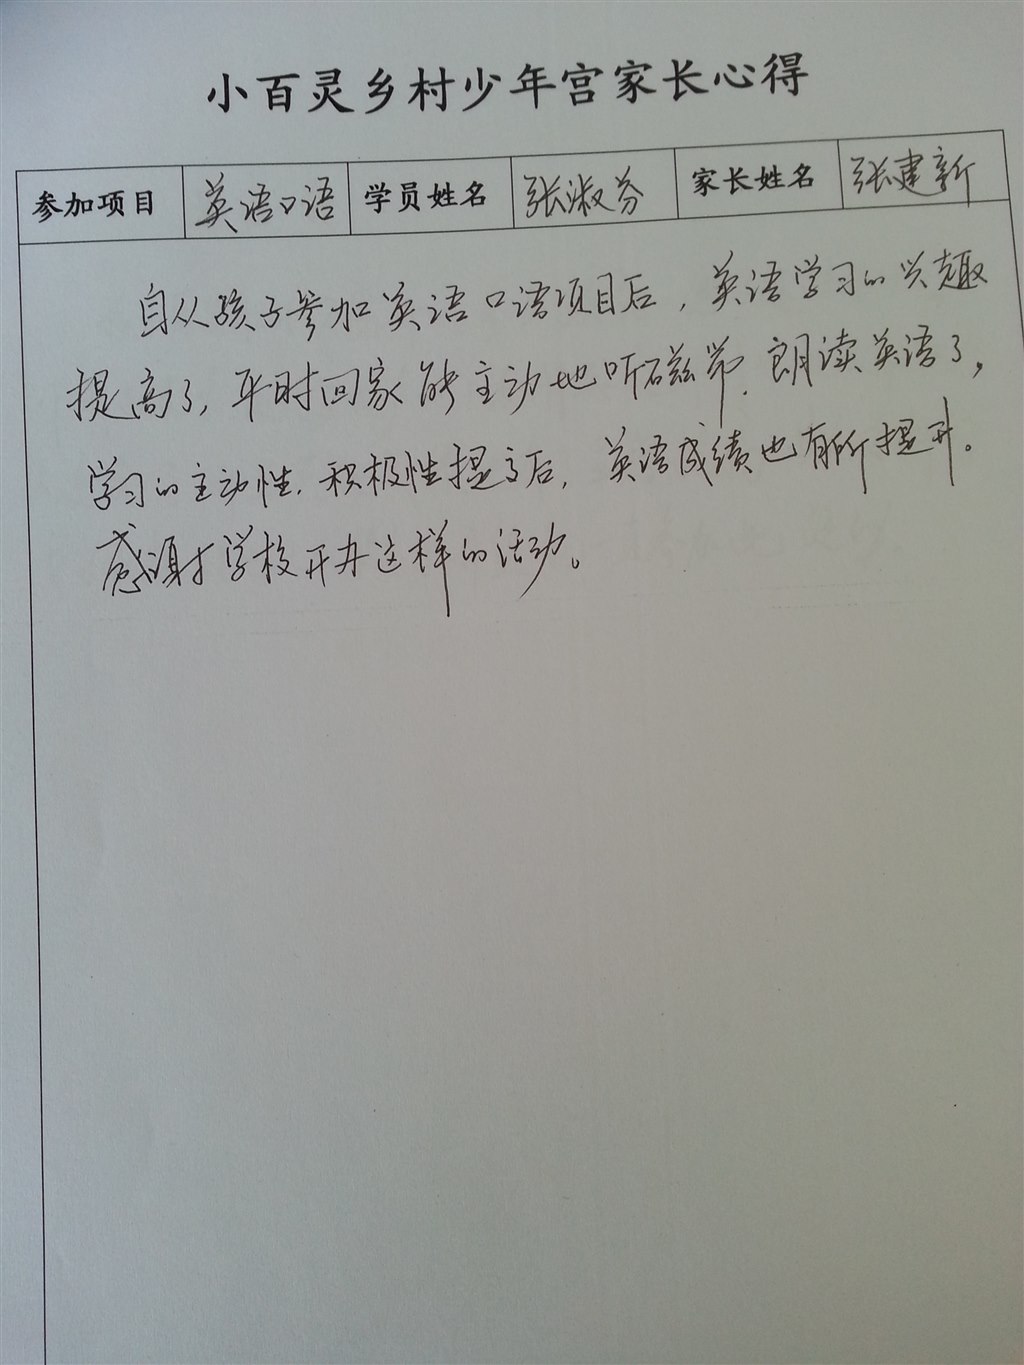 小百灵乡村少年宫家长心得
参加项目 英语口语 学员姓名 张淑芬 家长姓名 张建新
自从孩子参加英语口语项目后，英语学习的兴趣
提高了，平时回家能主动地听磁带、朗读英语了，
学习的主动性、积极性提高后，英语成绩也有所提升。
感谢学校开办这样的活动。